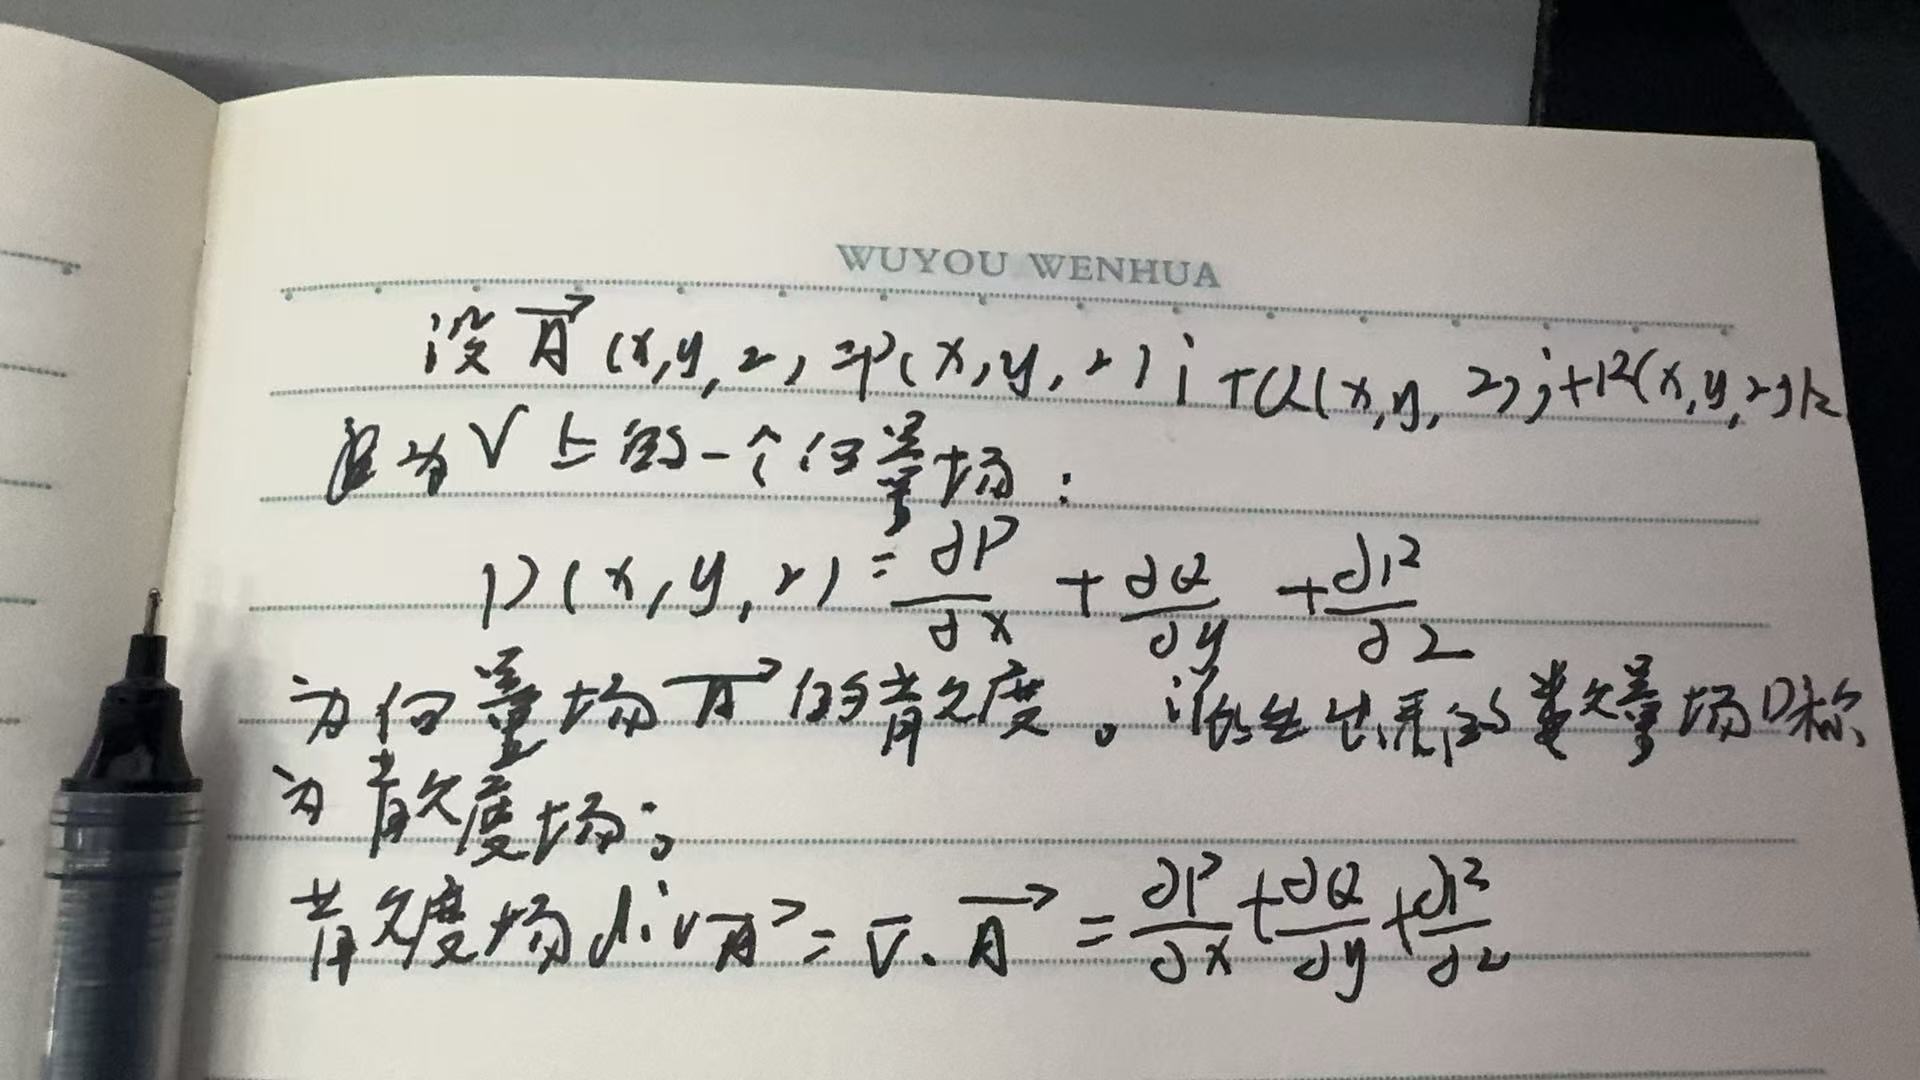 WUYOU WENHUA
设 A⃗ (x,y,z) = P(x,y,z)i+Q(x,y,z)j+R(x,y,z)k
为V上的一个向量场:
D(x,y,z) = ∂P/∂x + ∂Q/∂y + ∂R/∂z
为向量场 A⃗ 的散度。派生出来的数量场D称
为散度场;
散度场 div A⃗ = ∇·A⃗ = ∂P/∂x+∂Q/∂y+∂R/∂z